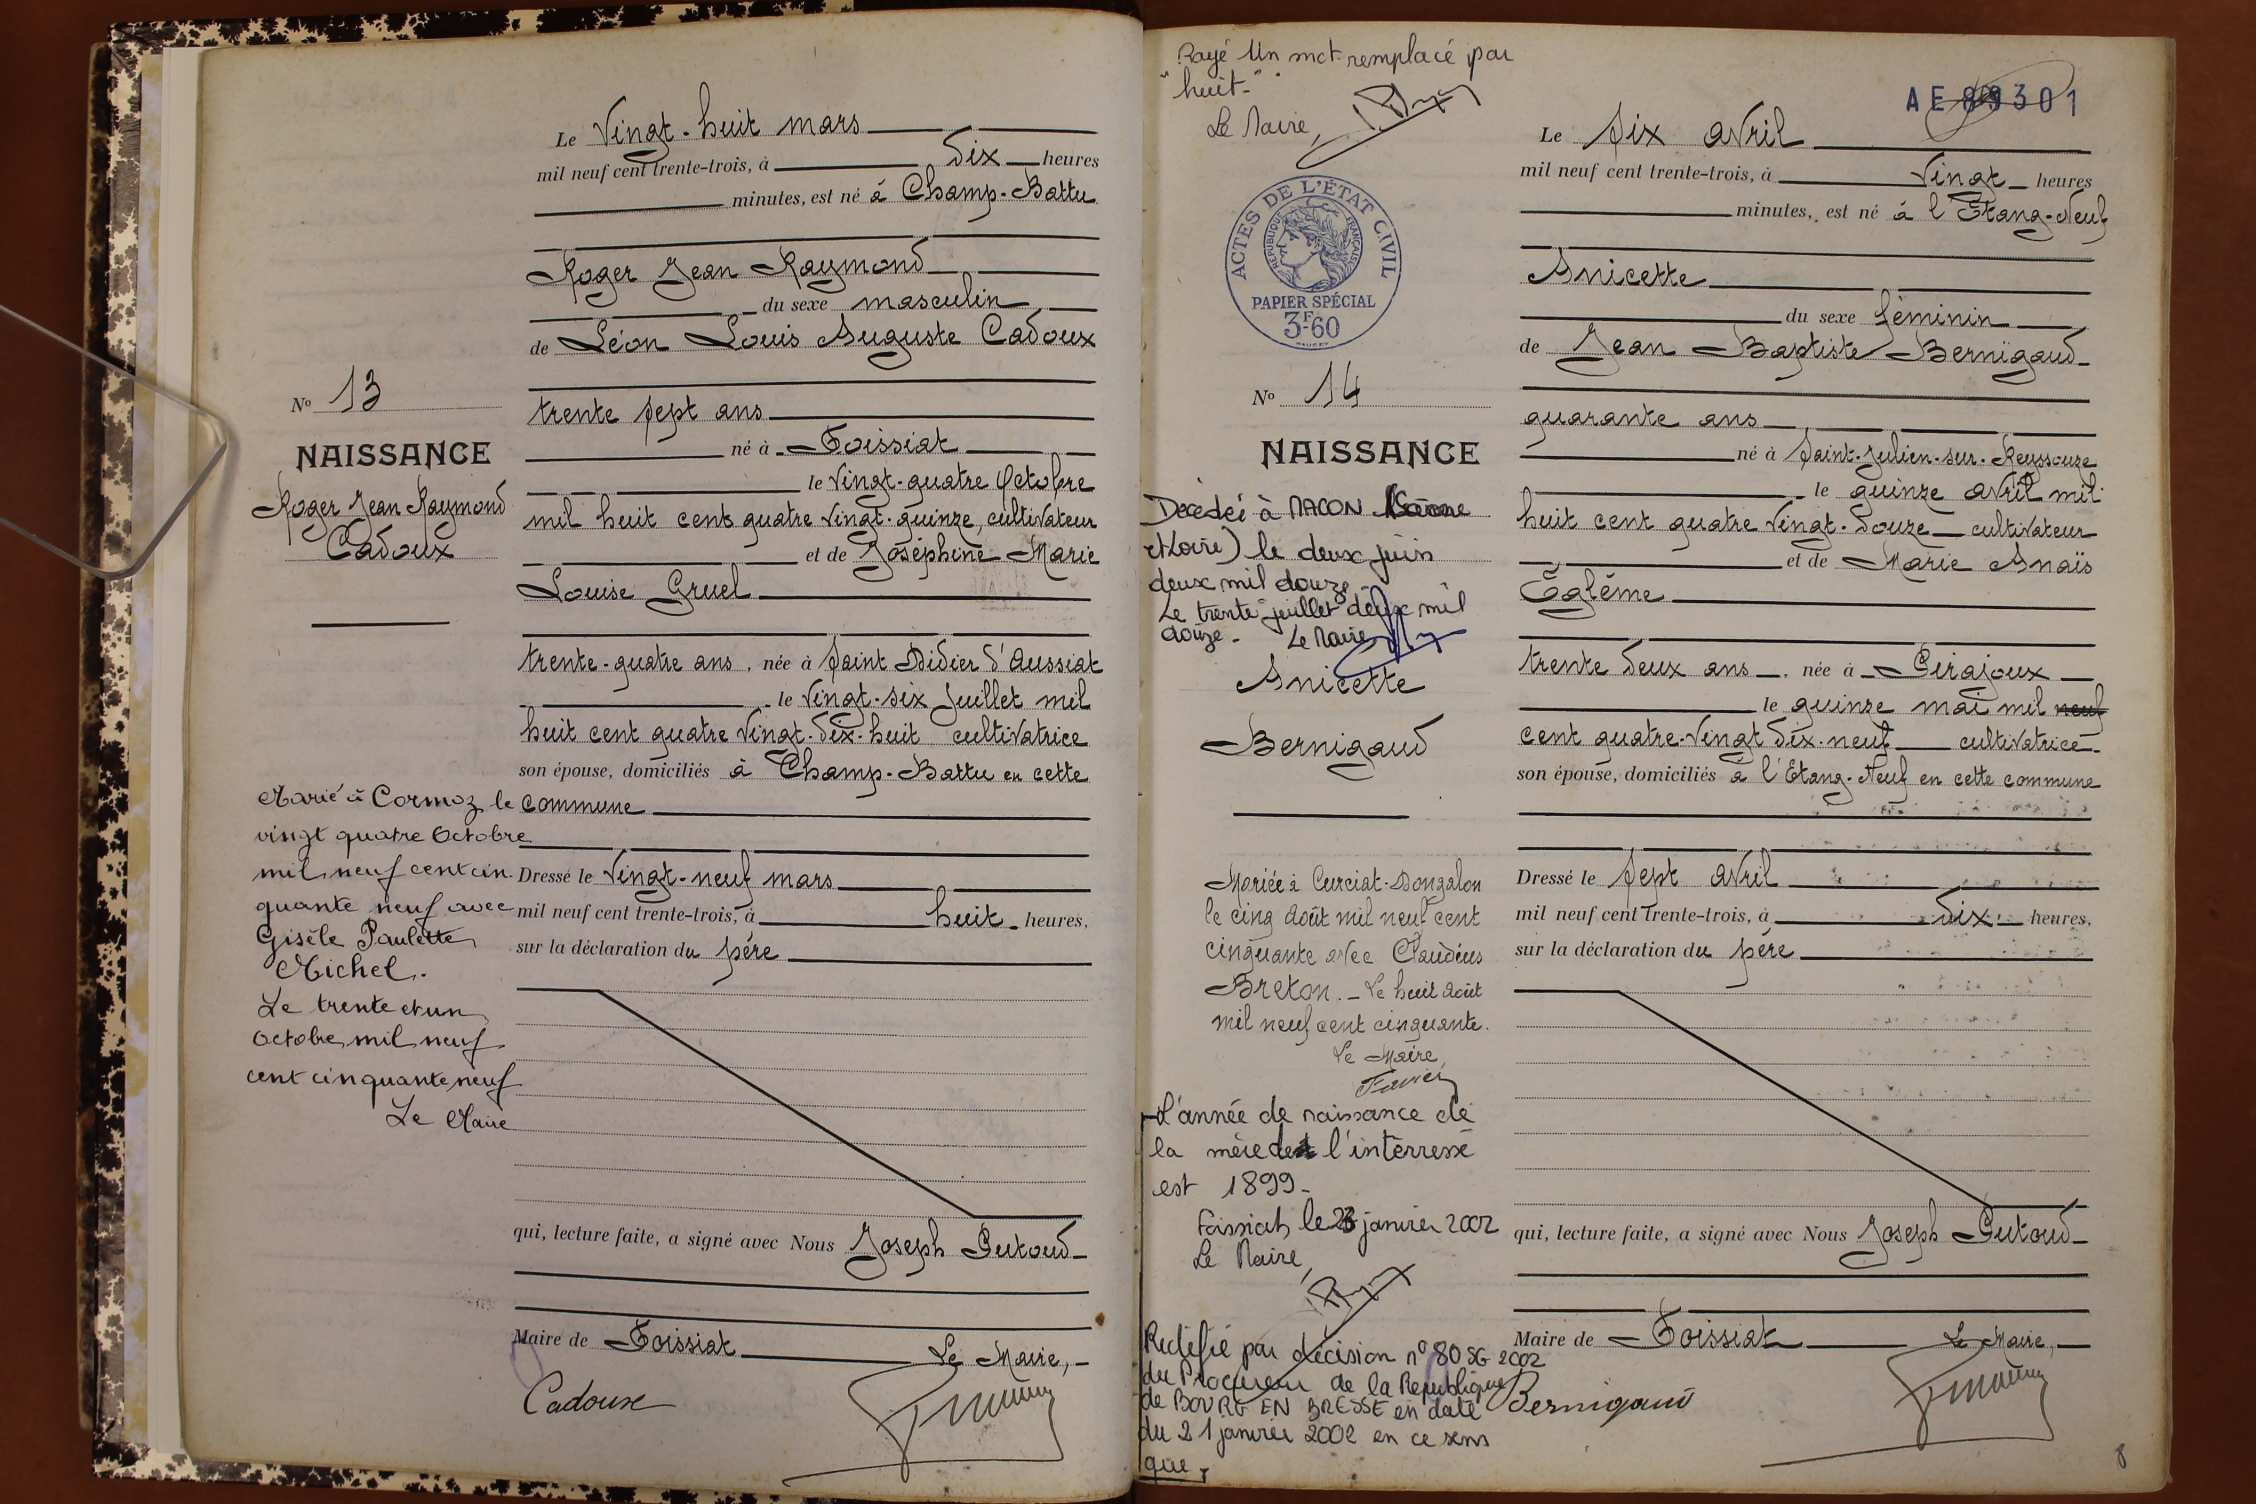 Le Vingt-huit mars
mil neuf cent trente-trois, à dix heures
minutes, est né à Champ-Battu
Roger Jean Raymond
du sexe masculin
de Léon Louis Auguste Cadoux
trente sept ans
né à Foissiat
le Vingt-quatre Octobre
mil huit cent quatre Vingt-quinze cultivateur
et de Joséphine Marie
Louise Gruel
trente-quatre ans, née à Saint Didier d'Aussiat
le Vingt-six Juillet mil
huit cent quatre Vingt-dix-huit cultivatrice
son épouse, domiciliés à Champ-Battu en cette
commune
Dressé le Vingt-neuf mars
mil neuf cent trente-trois, à huit heures,
sur la déclaration du père
qui, lecture faite, a signé avec Nous Joseph Putoud
Maire de Foissiat Le Maire,
Cadoux
No 13
NAISSANCE
Roger Jean Raymond
Cadoux
Marié à Cormoz le
vingt quatre Octobre
mil neuf cent cin-
quante neuf avec
Gisèle Paulette
Michel.
Le trente et un
Octobre mil neuf
cent cinquante neuf
Le Maire
Rayé Un mot remplacé par
"huit".
Le Maire,
ACTES DE L'ÉTAT CIVIL
RÉPUBLIQUE FRANÇAISE
PAPIER SPÉCIAL
3F.60
No 14
NAISSANCE
Décédéé à MACON (Saône
et Loire) le deux juin
deux mil douze
Le trente juillet deux mil
douze. Le Maire
Anicette
Bernigaud
Mariée à Curciat-Dongalon
le cinq Août mil neuf cent
cinquante avec Claudius
Breton. Le huit Août
mil neuf cent cinquante.
Le Maire,
L'année de naissance de
la mère de l'intérressé
est 1899.
Foissiat, le 23 janvier 2002
Le Maire,
Rectifié par décision no 80 SG 2002
du Procureur de la République
de BOURG EN BRESSE en date
du 21 janvier 2002 en ce sens
que
AE 89301
Le Six Avril
mil neuf cent trente-trois, à Vingt heures
minutes, est né à l'Etang-Neuf
Anicette
du sexe féminin
de Jean Baptiste Bernigaud
quarante ans
né à Saint-Julien-sur-Reyssouze
le quinze avril mil
huit cent quatre Vingt-douze cultivateur
et de Marie Anaïs
Eglème
trente deux ans, née à Pirajoux
le quinze mai mil neuf
cent quatre-Vingt dix-neuf cultivatrice
son épouse, domiciliés à l'Etang-Neuf en cette commune
Dressé le Sept Avril
mil neuf cent trente-trois, à dix heures,
sur la déclaration du père
qui, lecture faite, a signé avec Nous Joseph Putoud
Maire de Foissiat Le Maire,
Bernigaud
8